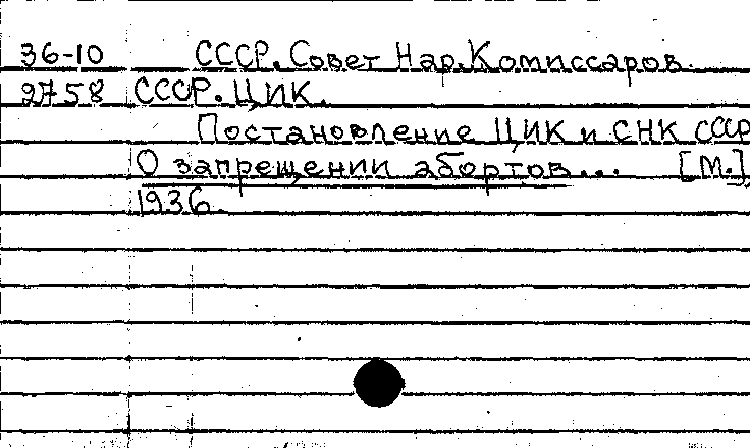 36-10 СССР. Совет Нар. Комиссаров.
2758 СССР. ЦИК.
Постановление ЦИК и СНК СССР
О запрещении абортов... [М.]
1936.